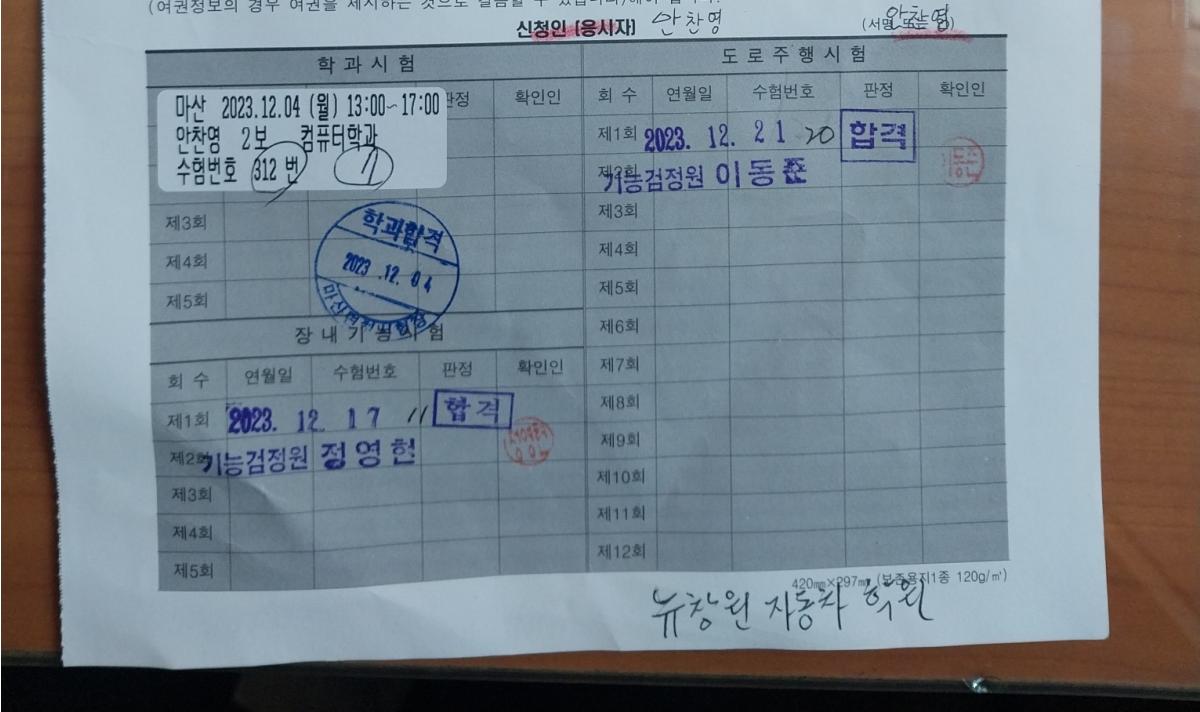 신청인 (응시자) 안찬영 (서명 또는 인) 안찬영
학과시험
마산 2023.12.04 (월) 13:00~17:00
안찬영 2보 컴퓨터학과
수험번호 312 번 7
판정 확인인
제3회
제4회
제5회
학과합격
2023.12.04
장내기능시험
회 수 연월일 수험번호 판정 확인인
제1회 2023. 12. 17 11 합격
제2회 기능검정원 정영현
제3회
제4회
제5회
도로주행시험
회 수 연월일 수험번호 판정 확인인
제1회 2023. 12. 21 20 합격
제2회 기능검정원 이동준
제3회
제4회
제5회
제6회
제7회
제8회
제9회
제10회
제11회
제12회
420㎜×297㎜ (보존용지1종 120g/㎡)
뉴창원 자동차 학원